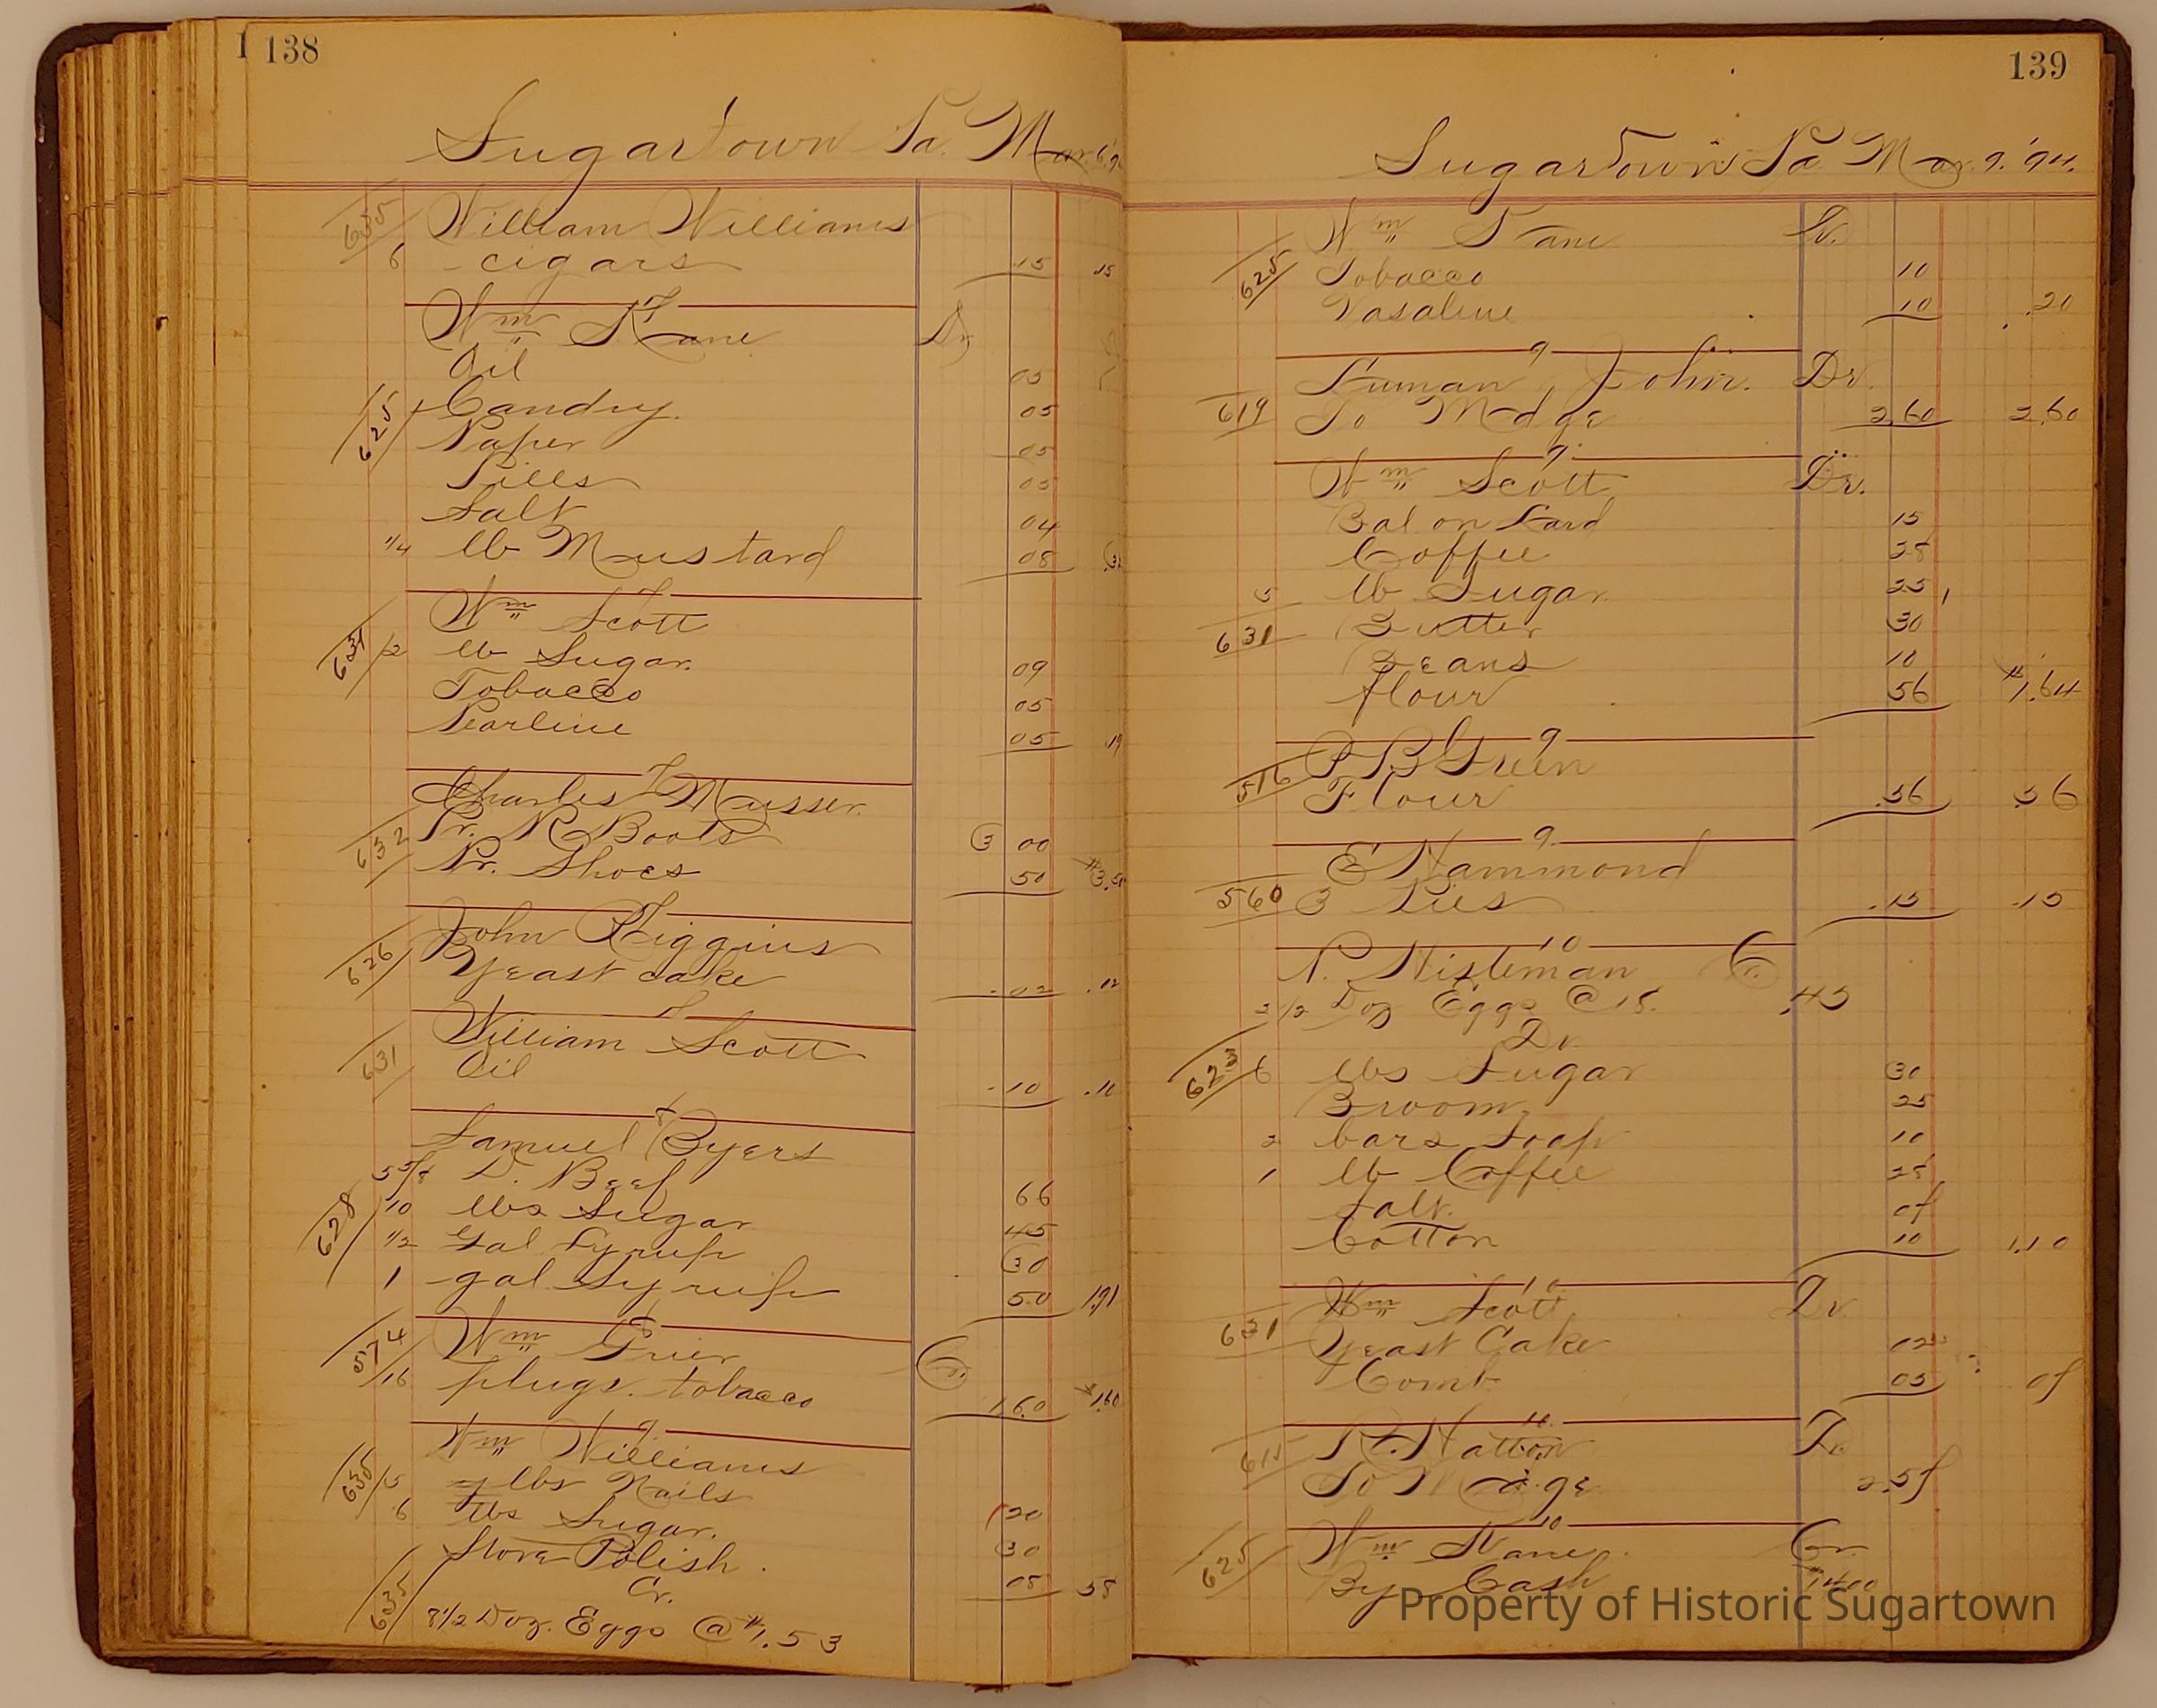 138
Sugartown Pa. Mar. 6,
655
William Williams
6 cigars 15 .15
7
Wm Kane Dr
Oil 05
625 Candy. 05
Paper 05
Pills 05
Salt 04
1/4 lb Mustard 08
7
Wm Scott
631 /2 lb Sugar. 09
Tobacco 05
Pearline 05 .19
7
Charles Musser.
632 Pr. R Boots 3 00
Pr. Shoes 50 $3.50
7
John Higgins
626 Yeast cake .02 .02
8
William Scott
631 Oil .10 .10
8
Samuel Byers
5 5/8 D. Beef 66
628 10 lbs Sugar 45
1/2 Gal Syrup 30
1 gal Syrup 50 1.91
8
574 Wm Grier Cr.
16 plugs. tobacco 1.60 $1.60
9.
Wm Williams
635 5 lbs Nails 20
6 lbs Sugar. 30
Stove Polish. 08 58
635 Cr.
8 1/2 Doz. Eggs @ $1.53
139
Sugartown Pa Mar. 9. '94.
Wm Kane Dr.
625 Tobacco 10
Vasaline 10 .20
9
Luman, John. Dr.
619 To Mdge 2.60 2.60
9.
Wm Scott Dr.
Bal on Lard 15
Coffee 28
5 lb Sugar 25
631 Butter 30
Beans 10
flour 56 $1.64
9
P B Green
516 Flour .56 .56
9.
E Hammond
560 3 Pies .15 .15
10
N. Histeman Cr.
2 1/2 Doz Eggs @ 18. .45
Dr
623 6 lbs Sugar 30
Broom. 25
2 bars Soap 10
1 lb Coffee 28
Salt.
Cotton 10 1.10
10
Wm Scott Dr.
631 Yeast Cake 02
Comb 05
10.
615 R. Hatton Dr.
To Mdge
10
625 Wm Kane. Cr.
By Cash $14.00
Property of Historic Sugartown